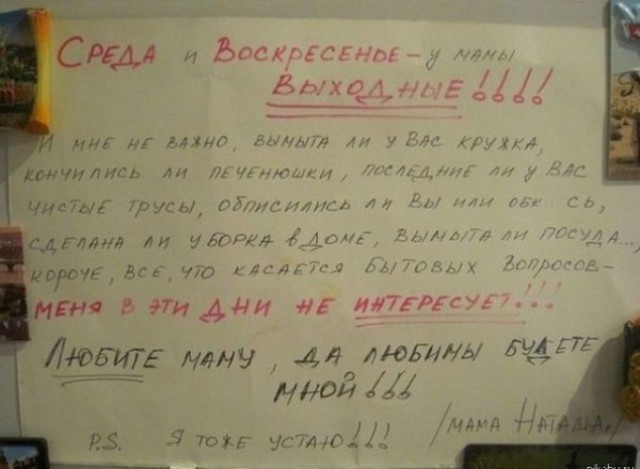 Среда и Воскресенье – у мамы
Выходные!!!!
И мне не важно, вымыта ли у Вас кружка,
кончились ли печенюшки, последние ли у Вас
чистые трусы, обписились ли Вы или обк...сь,
сделана ли уборка в доме, вымыта ли посуда...,
короче, все, что касается бытовых вопросов –
меня в эти дни не интересует!!!
Любите маму, да любимы будете
мной!!!
/мама Наташа/
P.S. Я тоже устаю!!!
pikabu.ru